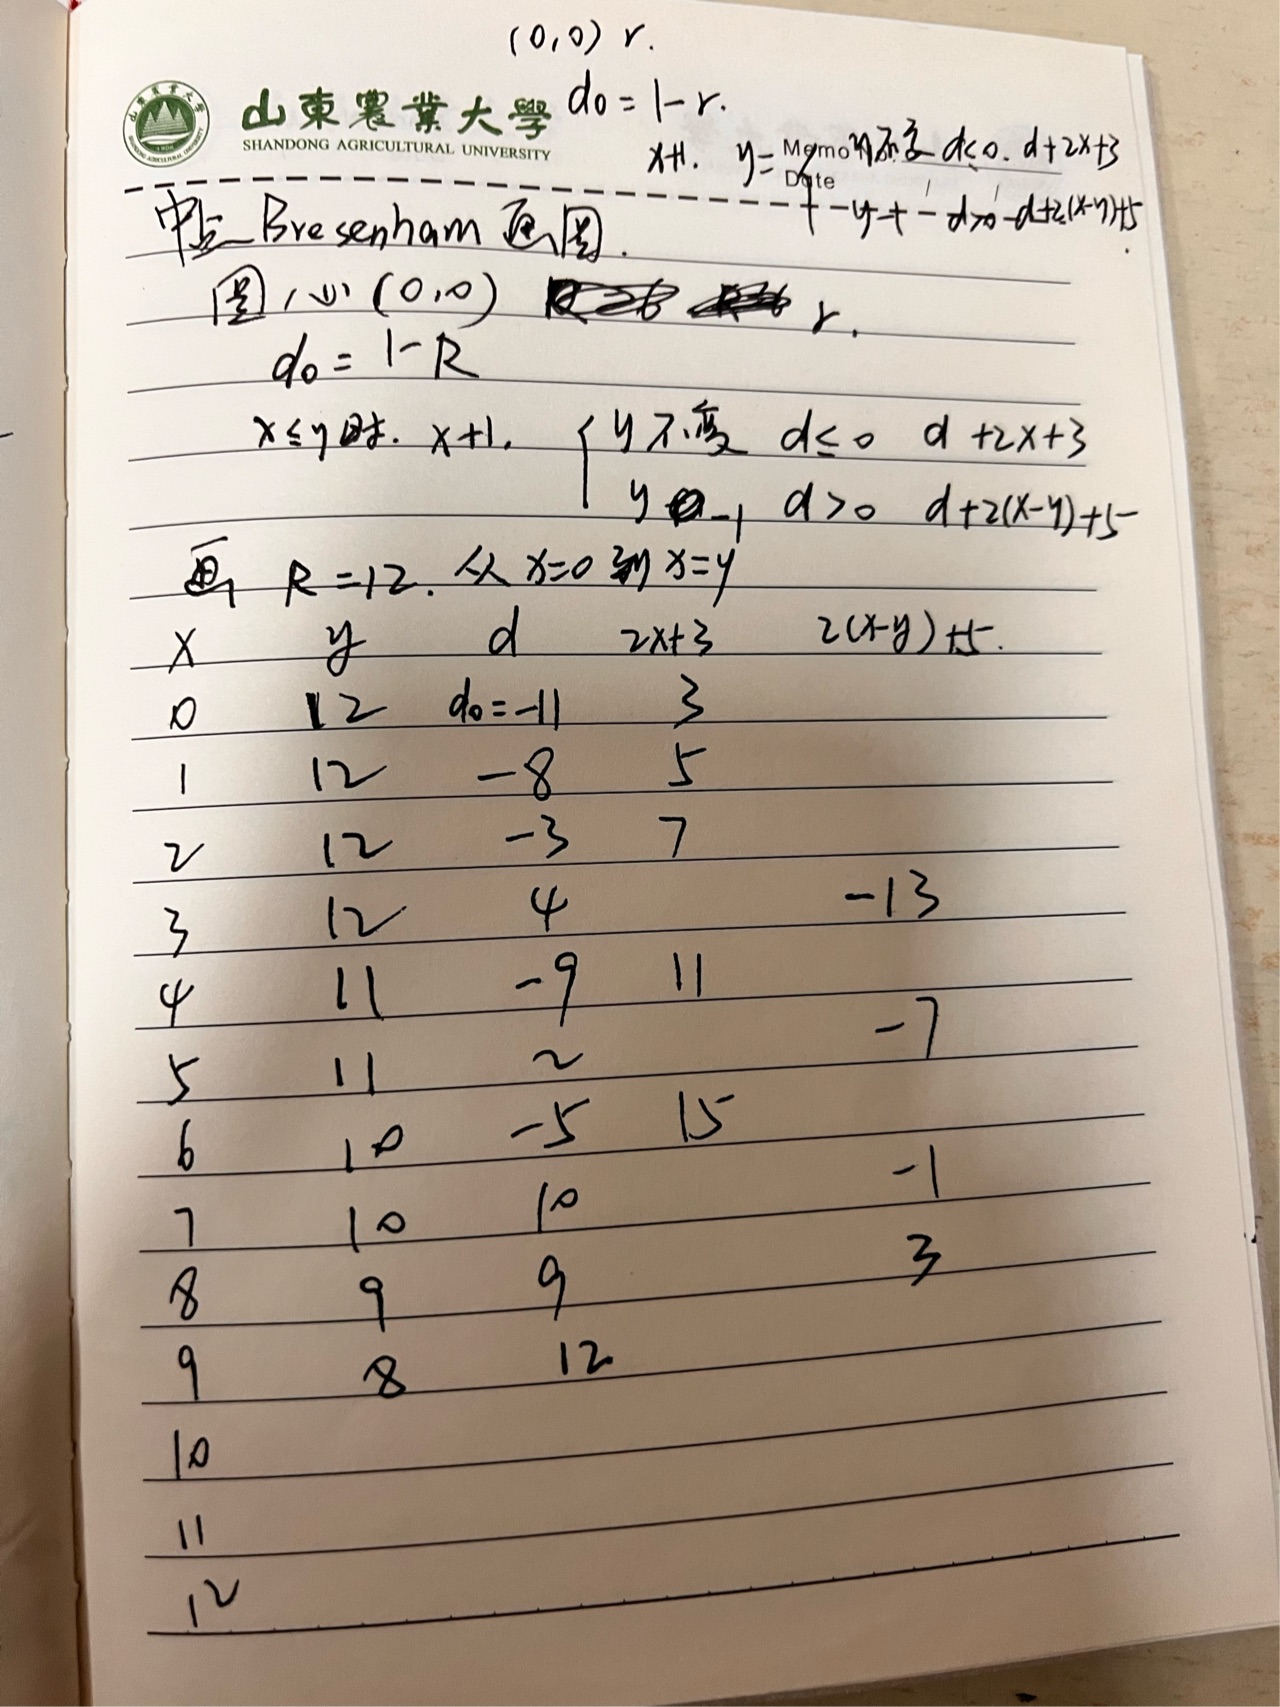 (0,0) r.
山東農業大學 d₀ = 1-r.
SHANDONG AGRICULTURAL UNIVERSITY
x+1. y= y不变 d≤0. d+2x+3
Memo
Date
y-1 d>0 d+2(x-y)+5
中点 Bresenham 画圆.
圆心 (0,0) r.
d₀ = 1-R
x≤y时. x+1. { y不变 d≤0 d+2x+3
y -1 d>0 d+2(x-y)+5
画 R=12. 从 x=0 到 x=y
x y d 2x+3 2(x-y)+5.
0 12 d₀=-11 3
1 12 -8 5
2 12 -3 7
3 12 4 -13
4 11 -9 11
5 11 2 -7
6 10 -5 15
7 10 10 -1
8 9 9 3
9 8 12
10
11
12